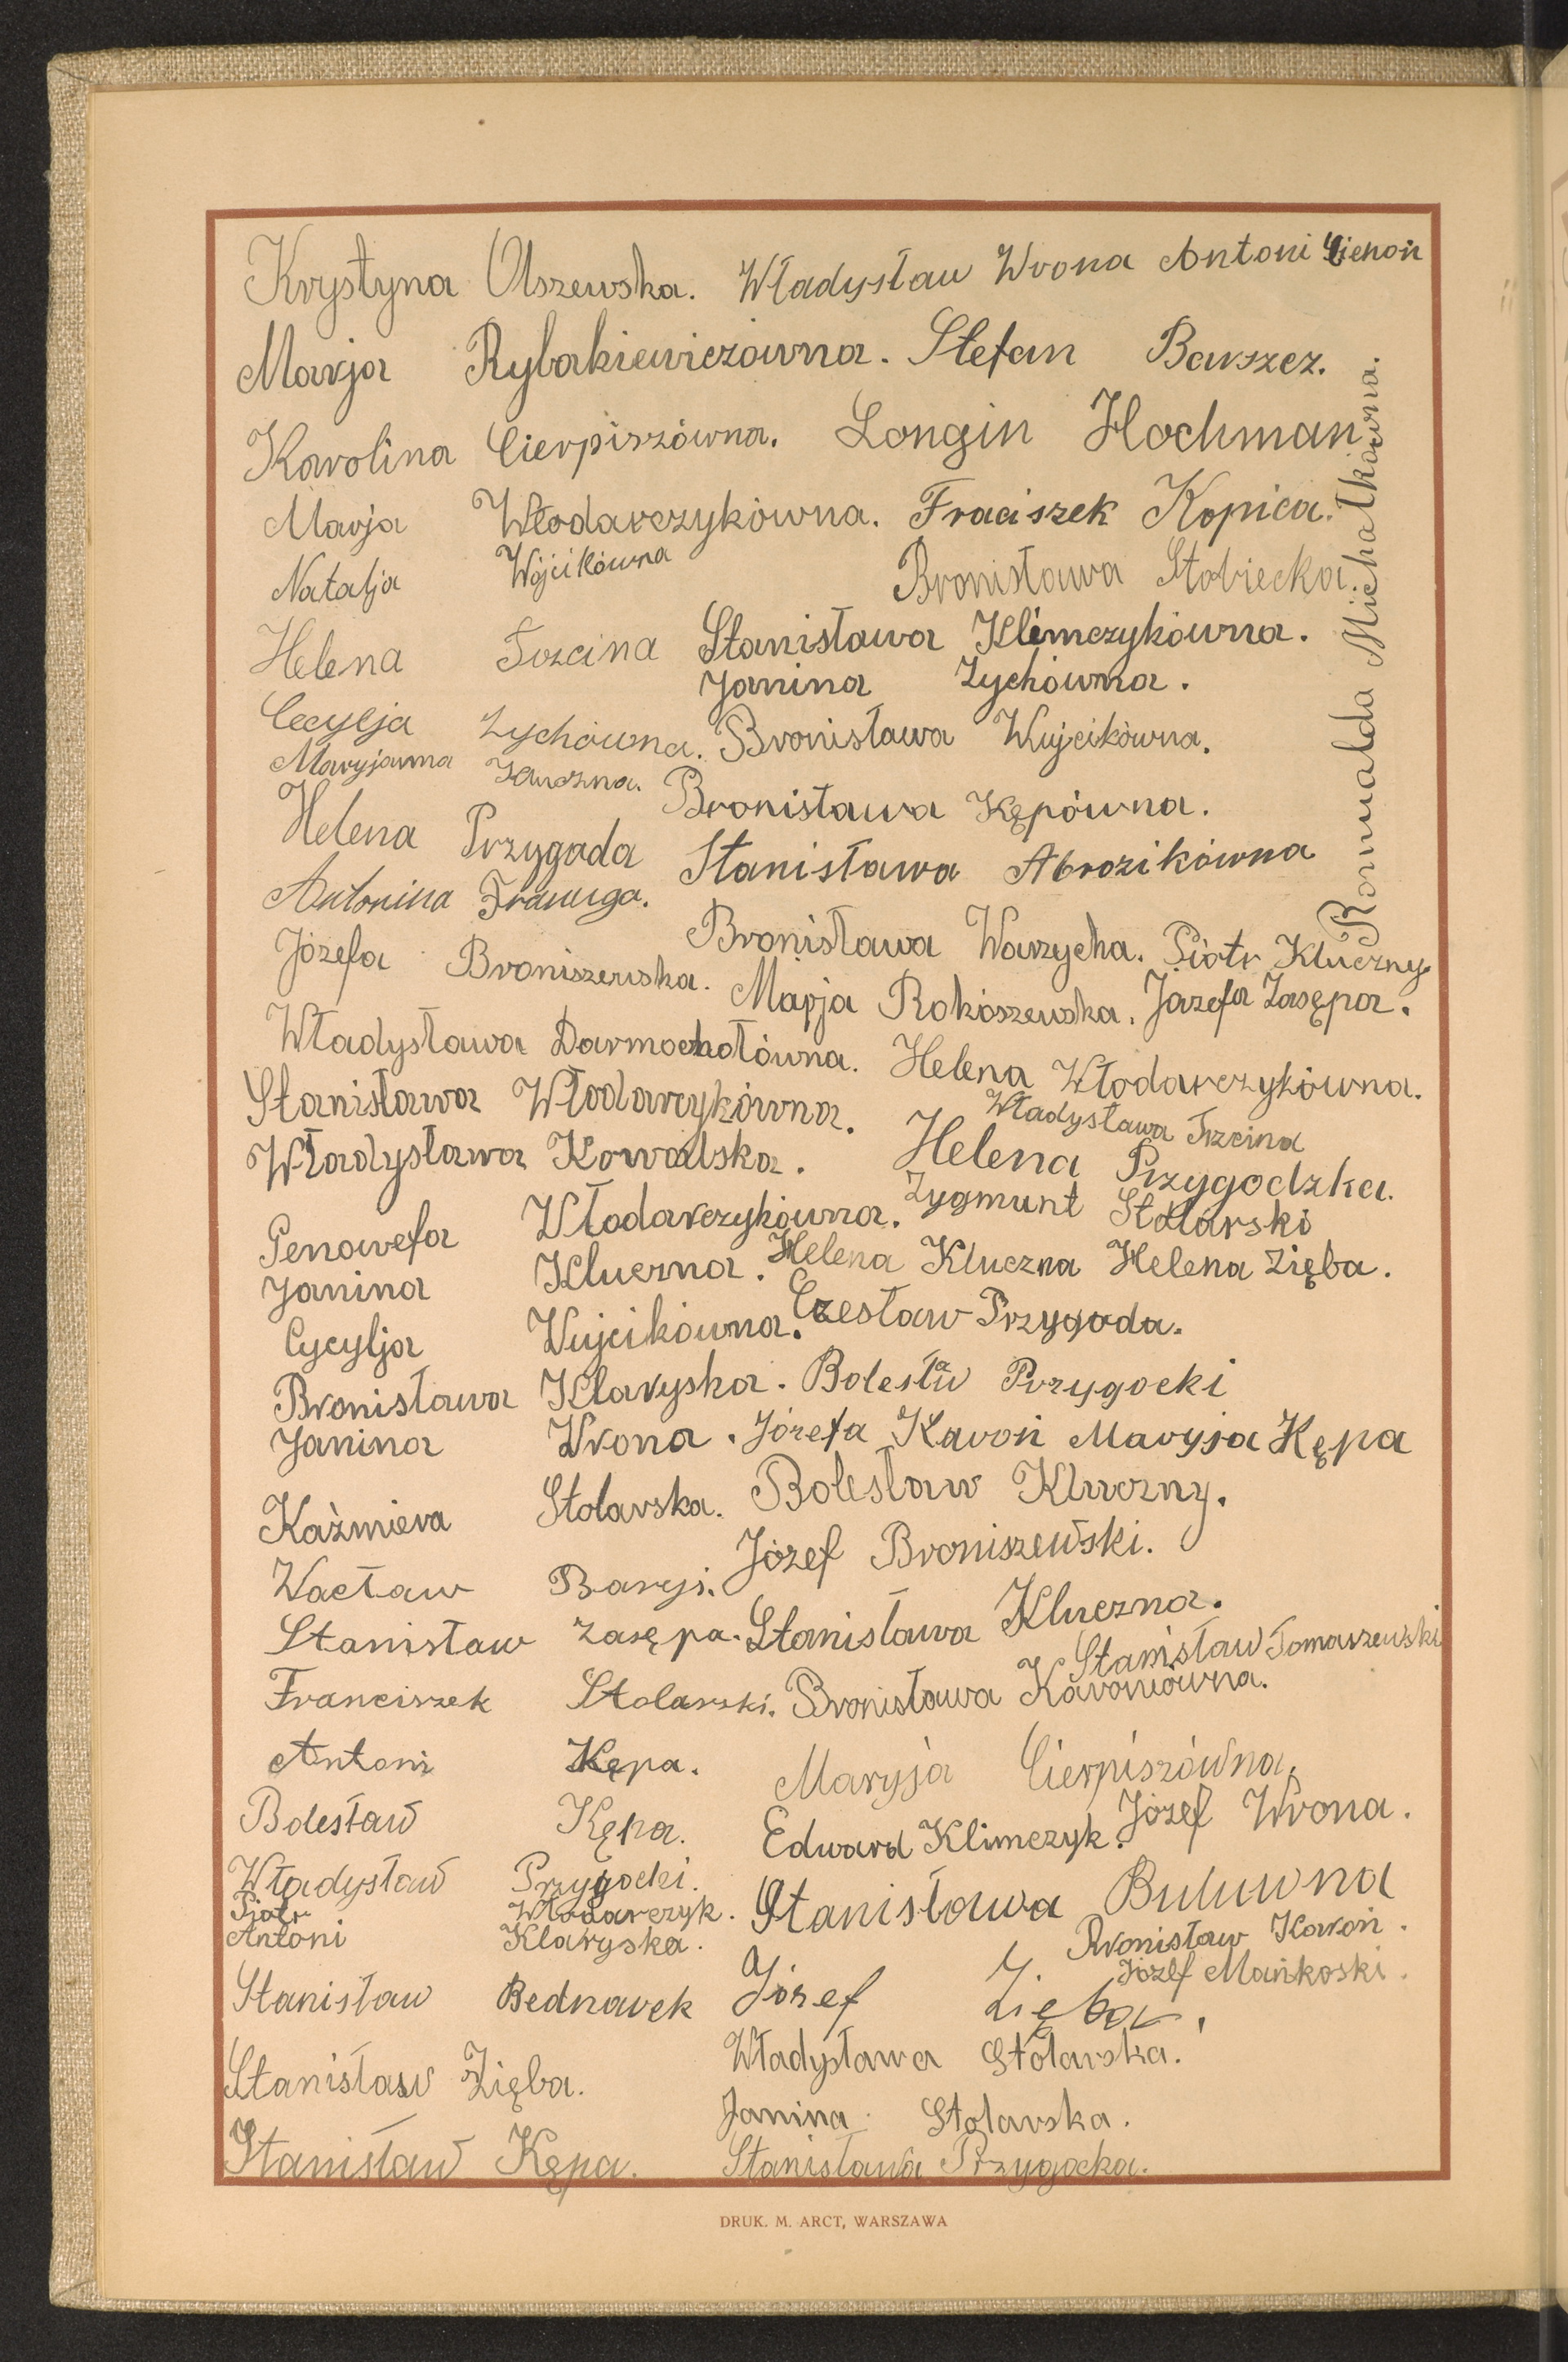 Krystyna Olszewska. Władysław Wrona Antoni Cichoń
Marja Rybakiewiczówna. Stefan Barszcz.
Karolina Cierpiszówna. Longin Hochman.
Marja Włodarczykówna. Fraciszek Kopica.
Natalja Wójcikówna Bronisława Stobiecka.
Romualda Michałkówna.
Helena Trzcina Stanisława Klimczykówna.
Janina Zychówna.
Cecylja Zychówna. Bronisława Wujcikówna.
Maryjanna Kluczna. Bronisława Kępówna.
Helena Przygoda Stanisława Abrozikówna
Antonina Framuga.
Józefa Broniszewska. Bronisława Warzycha. Piotr Kluczny
Marja Rokoszewska. Józefa Zasępa.
Władysława Darmochałówna. Helena Włodarczykówna.
Stanisława Włodarczykówna. Władysława Trzcina
Władysława Kowalska. Helena Przygodzka.
Penowefa Włodarczykówna. Zygmunt Stolarski
Janina Kluczna. Helena Kluczna Helena Zięba.
Cycylja Wujcikówna. Czesław Przygoda.
Bronisława Klaryska. Bolesław Przygocki
Janina Wrona. Józefa Karoń Maryja Kępa
Kaźmiera Stolarska. Bolesław Kluczny.
Wacław Baryś. Józef Broniszewski.
Stanisław Zasępa. Stanisława Kluczna.
Stanisław Tomaszewski
Franciszek Stolarski. Bronisława Karoniówna.
Antoni Kępa. Maryja Cierpiszówna.
Bolesław Kępa. Edward Klimczyk. Józef Wrona.
Władysław Przygocki. Stanisława Buluwna
Piotr Włodarczyk.
Antoni Klaryska. Bronisław Karoń.
Józef Mańkoski.
Stanisław Bednarek Józef Zięba.
Władysława Stolarska.
Stanisław Zięba.
Janina Stolarska.
Stanisław Kępa. Stanisława Przygocka.
DRUK. M. ARCT, WARSZAWA